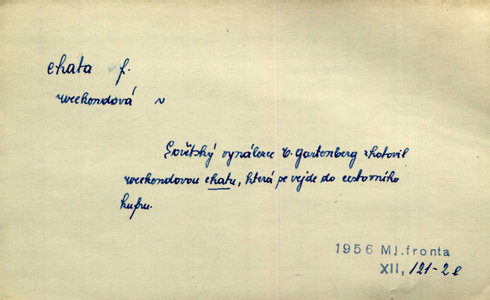 chata f.
weekendová v
Sovětský vynálezce V. Gartenberg zhotovil
weekendovou chatu, která se vejde do cestovního
kufru.
1956 Ml.fronta
XII, 121-2 e